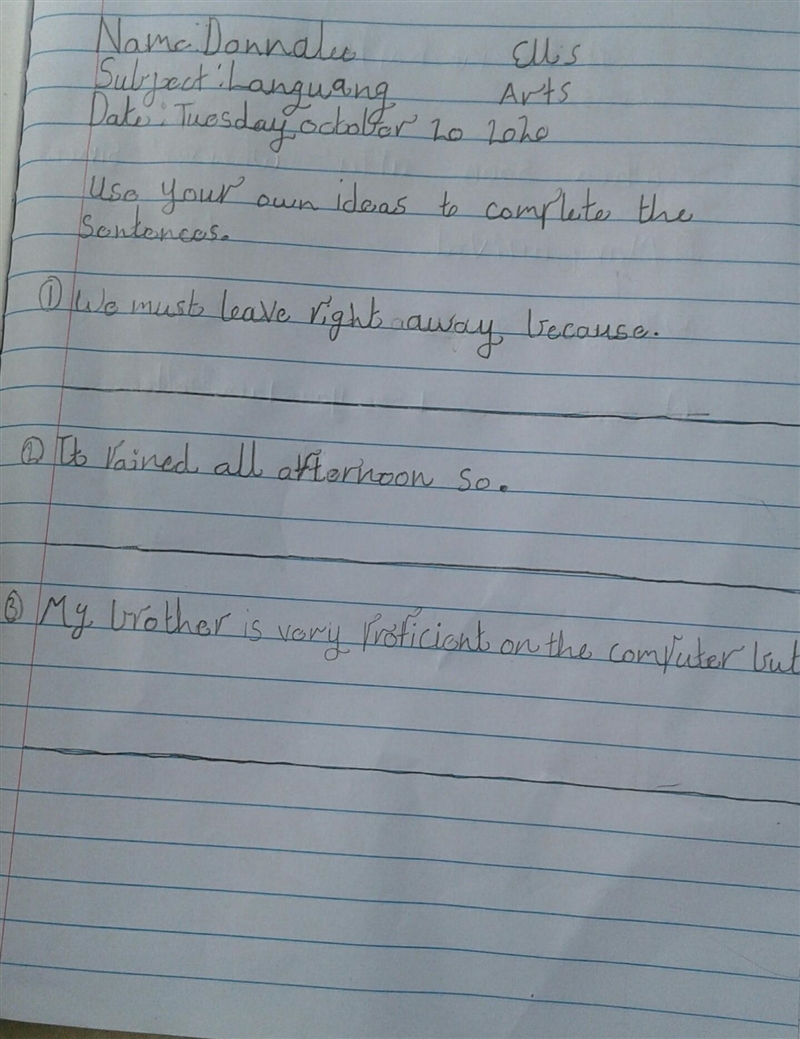 Name: Donnalee Ellis
Subject: Languang Arts
Date: Tuesday, october 20 2020
Use your own ideas to complete the
Sentences.
① We must leave right away, because.
② It rained all afternoon so.
③ My brother is very proficient on the computer but